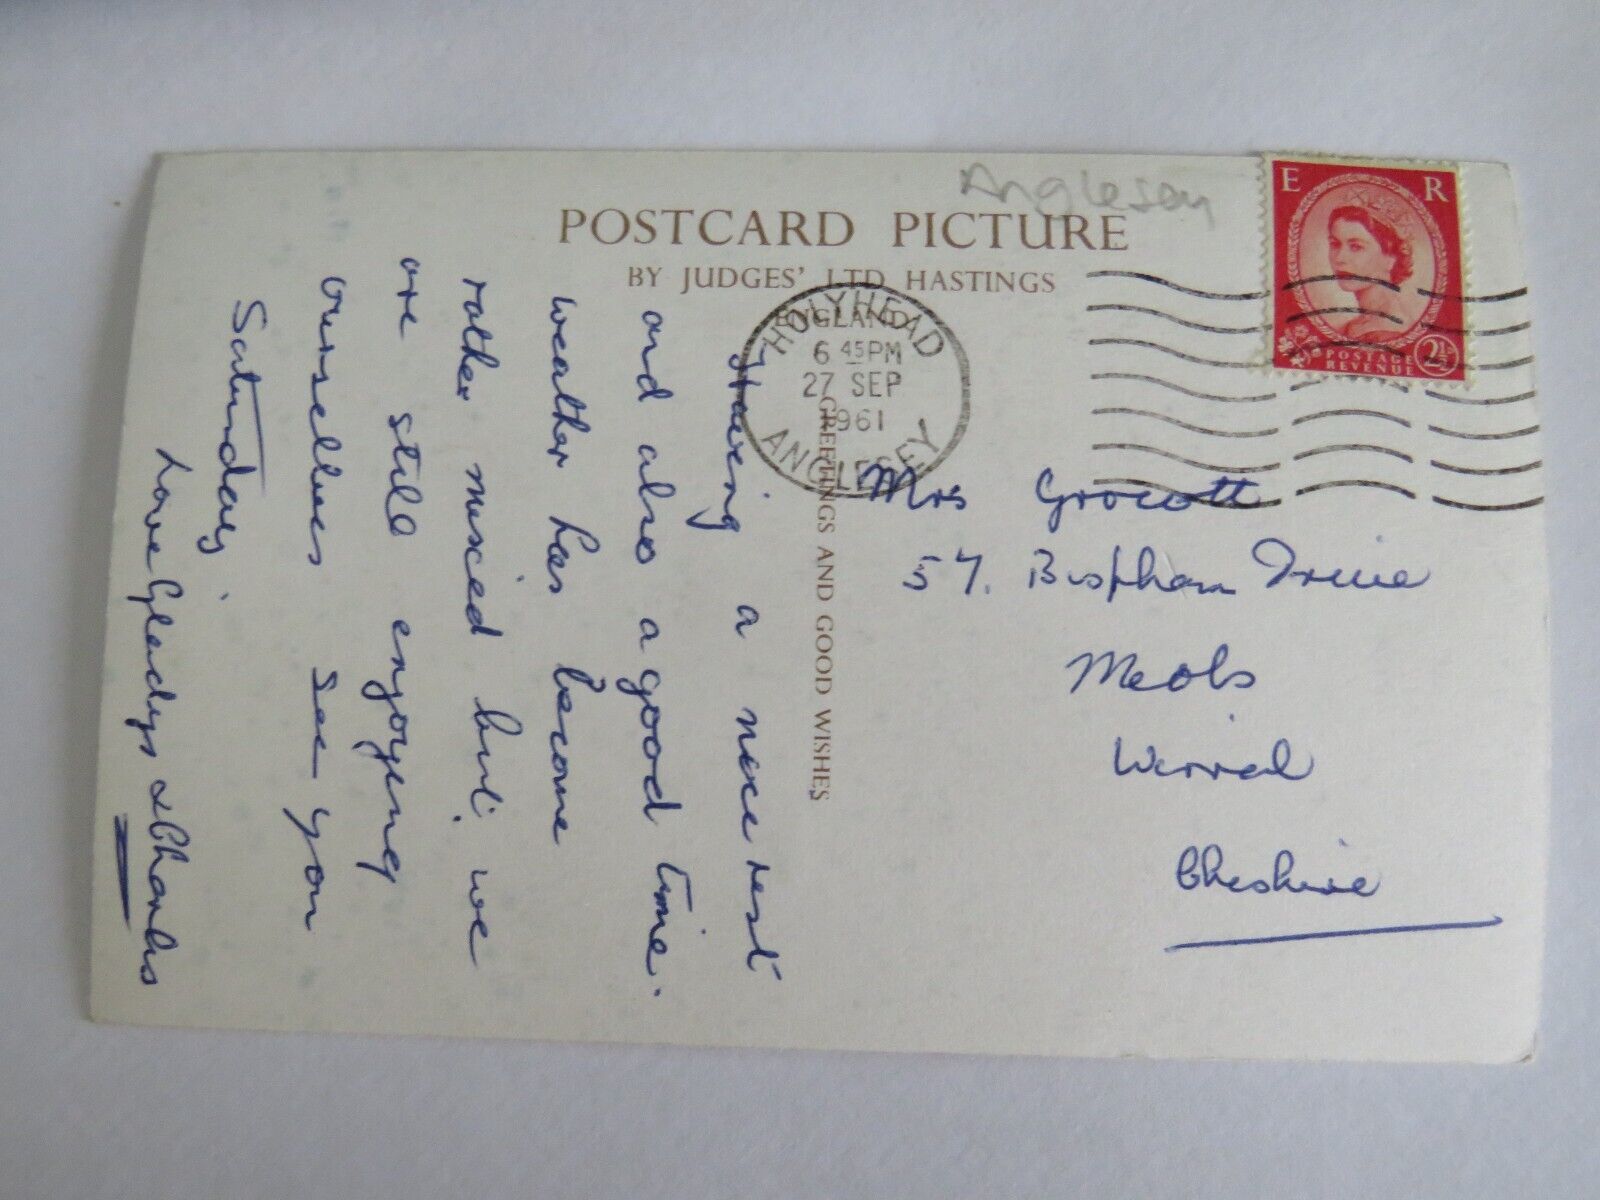 Anglesey
POSTCARD PICTURE
BY JUDGES' LTD HASTINGS
ENGLAND
GREETINGS AND GOOD WISHES
HOLYHEAD
6 45 PM
27 SEP
1961
ANGLESEY
E R
POSTAGE
REVENUE
2½
Having a nice rest
and also a good time.
weather has become
rather mixed but we
are still enjoying
ourselves see you
Saturday.
Love Gladys & Charls
Mrs Grocott
57. Bispham Drive
Meols
Wirral
Cheshire